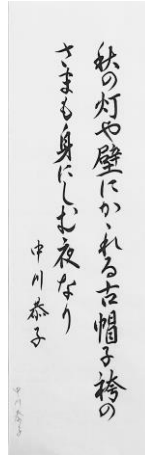 秋の灯や壁にかゝれる古帽子袴の
さまも身にしむ夜なり
中川恭子
中川恭子